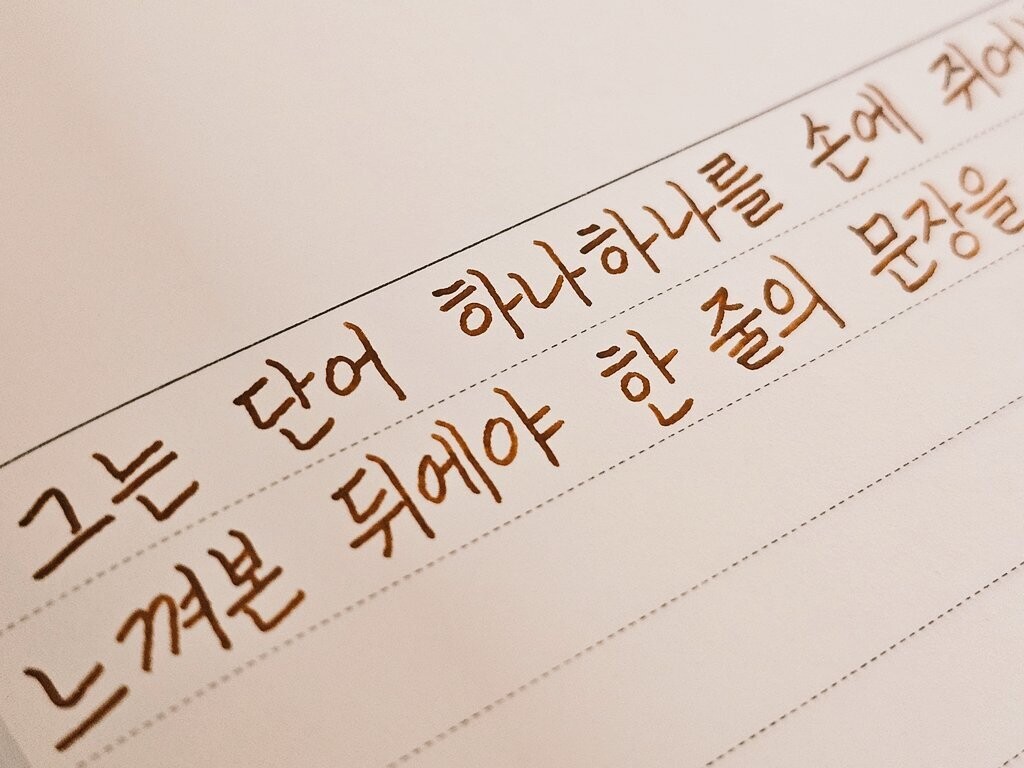 그는 단어 하나하나를 손에 쥐어
느껴본 뒤에야 한 줄의 문장을